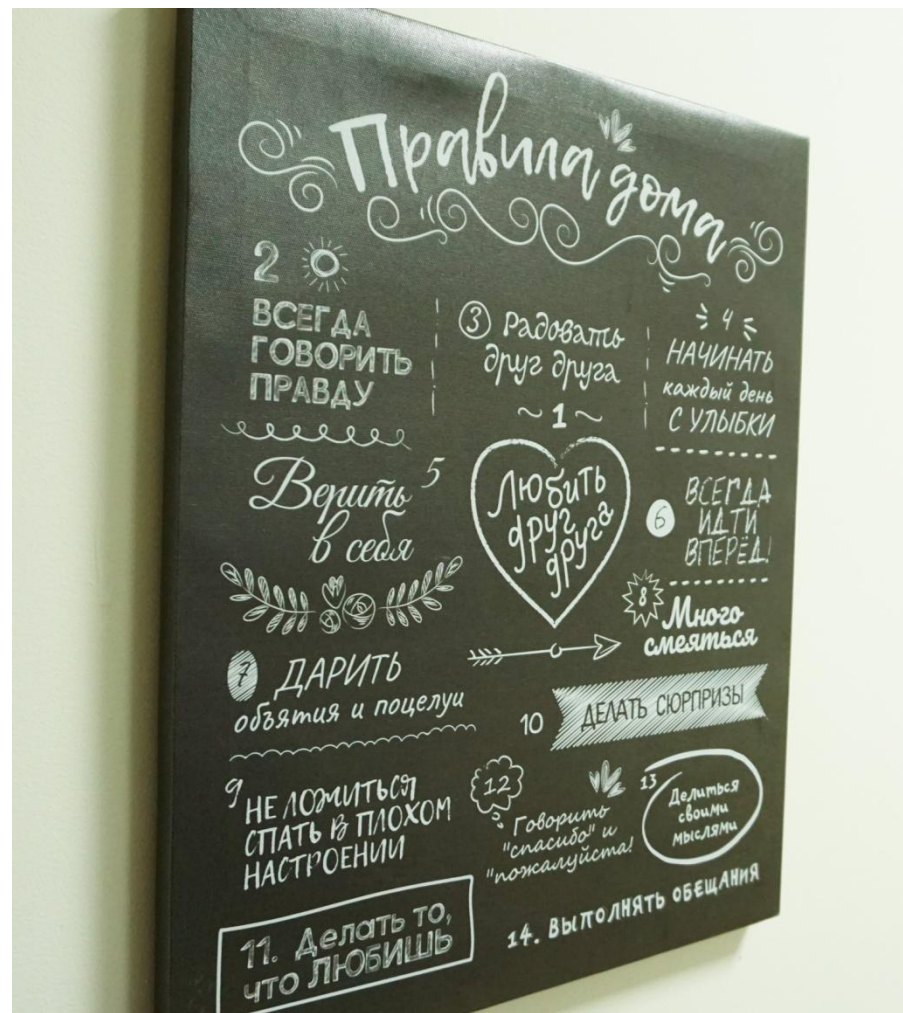 Правила дома
2
ВСЕГДА
ГОВОРИТЬ
ПРАВДУ
3 Радовать
друг друга
4
НАЧИНАТЬ
каждый день
С УЛЫБКИ
~1~
Любить
друг
друга
5
Верить
в себя
6
ВСЕГДА
ИДТИ
ВПЕРЁД!
7 ДАРИТЬ
объятия и поцелуи
8
Много
смеяться
9
НЕ ЛОЖИТЬСЯ
СПАТЬ В ПЛОХОМ
НАСТРОЕНИИ
10 ДЕЛАТЬ СЮРПРИЗЫ
12
Говорить
"спасибо" и
"пожалуйста!
13
Делиться
своими
мыслями
11. Делать то,
что ЛЮБИШЬ
14. ВЫПОЛНЯТЬ ОБЕЩАНИЯ